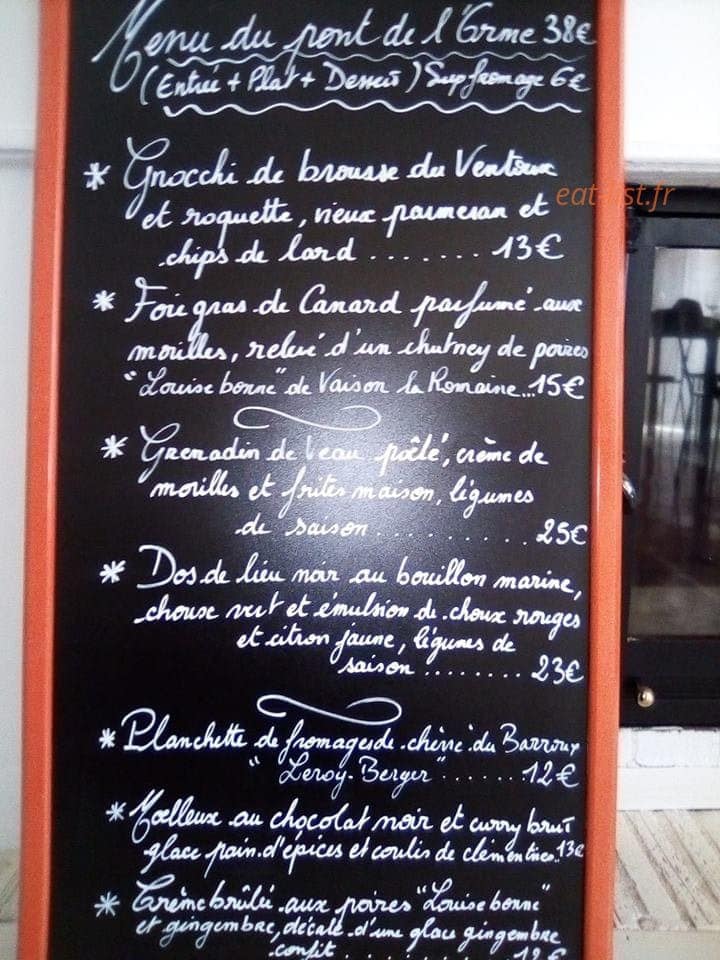 Menu du pont de l'Orme 38€
(Entrée + Plat + Dessert) Sup fromage 6€
* Gnocchi de brousse du Ventoux
et roquette, vieux parmesan et
chips de lard ....... 13€
eat-list.fr
* Foie gras de Canard parfumé aux
morilles, relevé d'un chutney de poires
"Louise bonne" de Vaison la Romaine...15€
* Grenadin de Veau poêlé, crème de
morilles et frites maison, légumes
de saison .......... 25€
* Dos de lieu noir au bouillon marine,
choux vert et émulsion de choux rouges
et citron jaune, légumes de
saison ........ 23€
* Planchette de fromages de chèvre du Barroux
"Leroy-Berger" ....... 12€
* Moelleux au chocolat noir et curry breut
glace pain d'épices et coulis de clémentines..13€
* Crème brûlée aux poires "Louise bonne"
et gingembre, décalé d'une glace gingembre
confit .. 12€